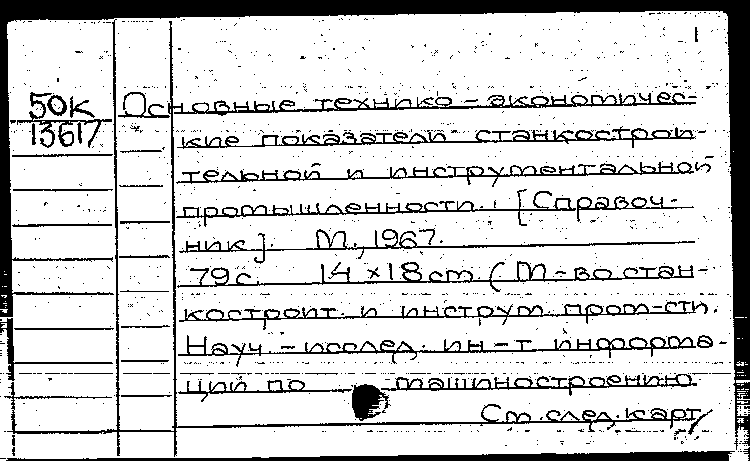 1
50к Основные технико-экономичес-
13617 кие показатели станкострои-
тельной и инструментальной
промышленности. [Справоч-
ник]. М., 1967.
79с. 14×18см. (М-во стан-
костроит. и инструм. пром-сти.
Науч.-исслед. ин-т информа-
ции по машиностроению
См.след.карт